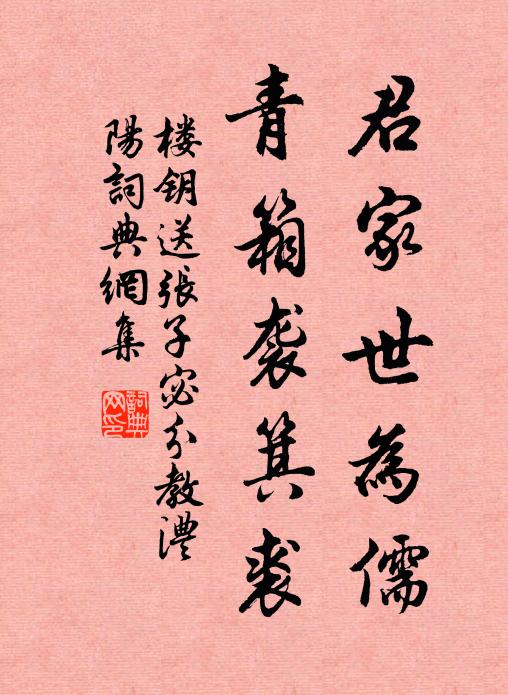 君家世為儒
青箱袭箕裘
楼钥送張子宓分教澧
陽詞典網集
詞典
网印